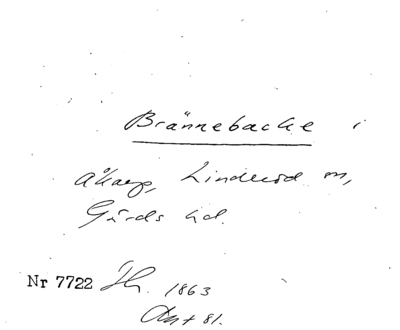 Brännebacke i
Åkarp, Linderöd sn,
Gärds hd.
Nr 7722 Jh. 1863
Avs 81.